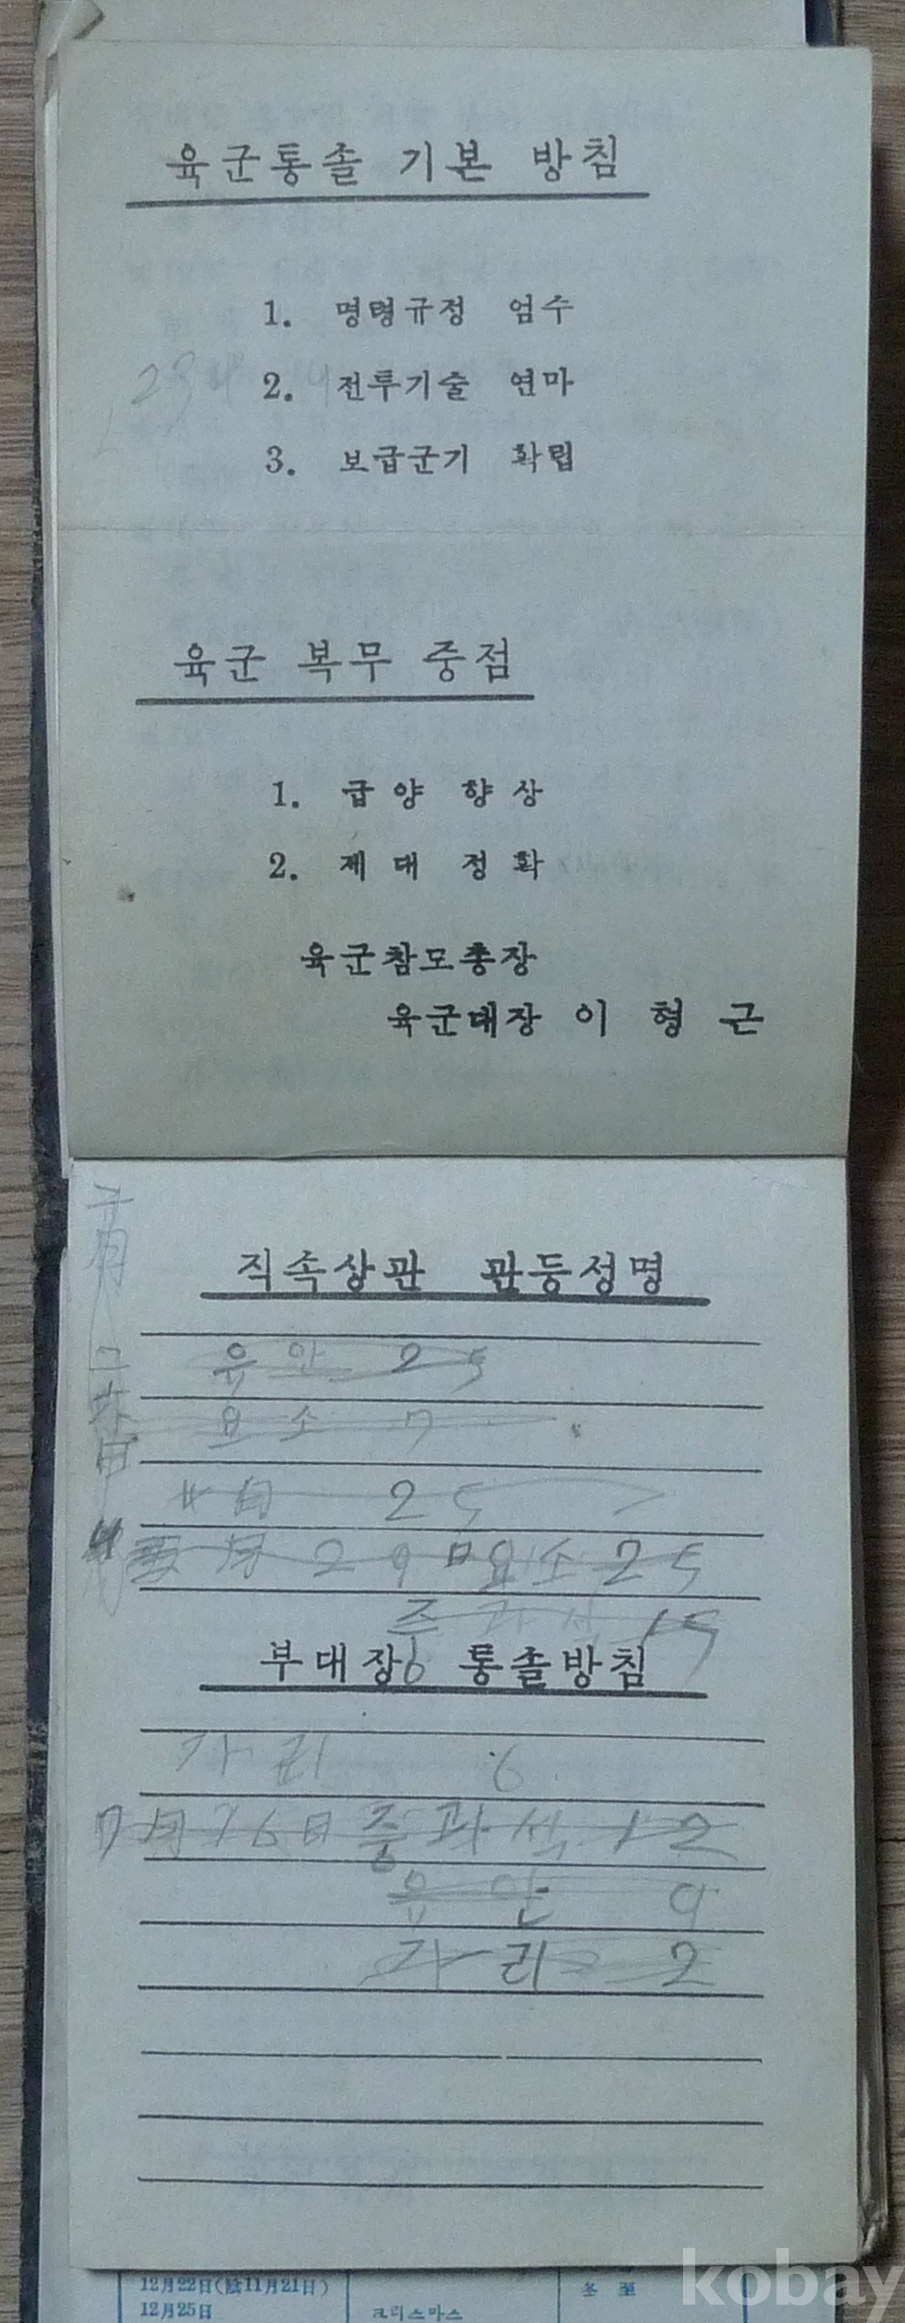 육군통솔 기본 방침
1. 명령규정 엄수
2. 전투기술 연마
3. 보급군기 확립
육군 복무 중점
1. 급양 향상
2. 제대 정화
육군참모총장
육군대장 이형근
직속상관 관등성명
유안 25
요소 7
25
요소 25
중과석 15
부대장 통솔방침
가리 6
7月 16日 중과석 12
유안 9
가리 2
12月22日(陰11月21日) 冬至
12月25日 크리스마스
kobay